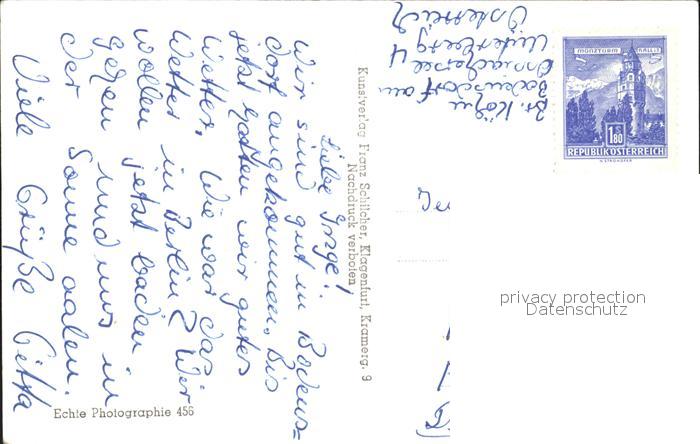 Br. Köfer
Bodensdorf am
Ossiachersee 4
Österreich
MÜNZTURM HALL i. T.
S
1.80
REPUBLIK ÖSTERREICH
Liebe Inge!
Wir sind gut in Bodens=
dorf angekommen. Bis
jetzt hatten wir gutes
Wetter. Wie war das
Wetter in Berlin? Wir
wollen jetzt baden
gehen und uns in
der Sonne aalen.
Viele Grüße Gitta
Kunstverlag Franz Schilcher, Klagenfurt, Kramerg. 9
Nachdruck verboten
privacy protection
Datenschutz
Echte Photographie 456